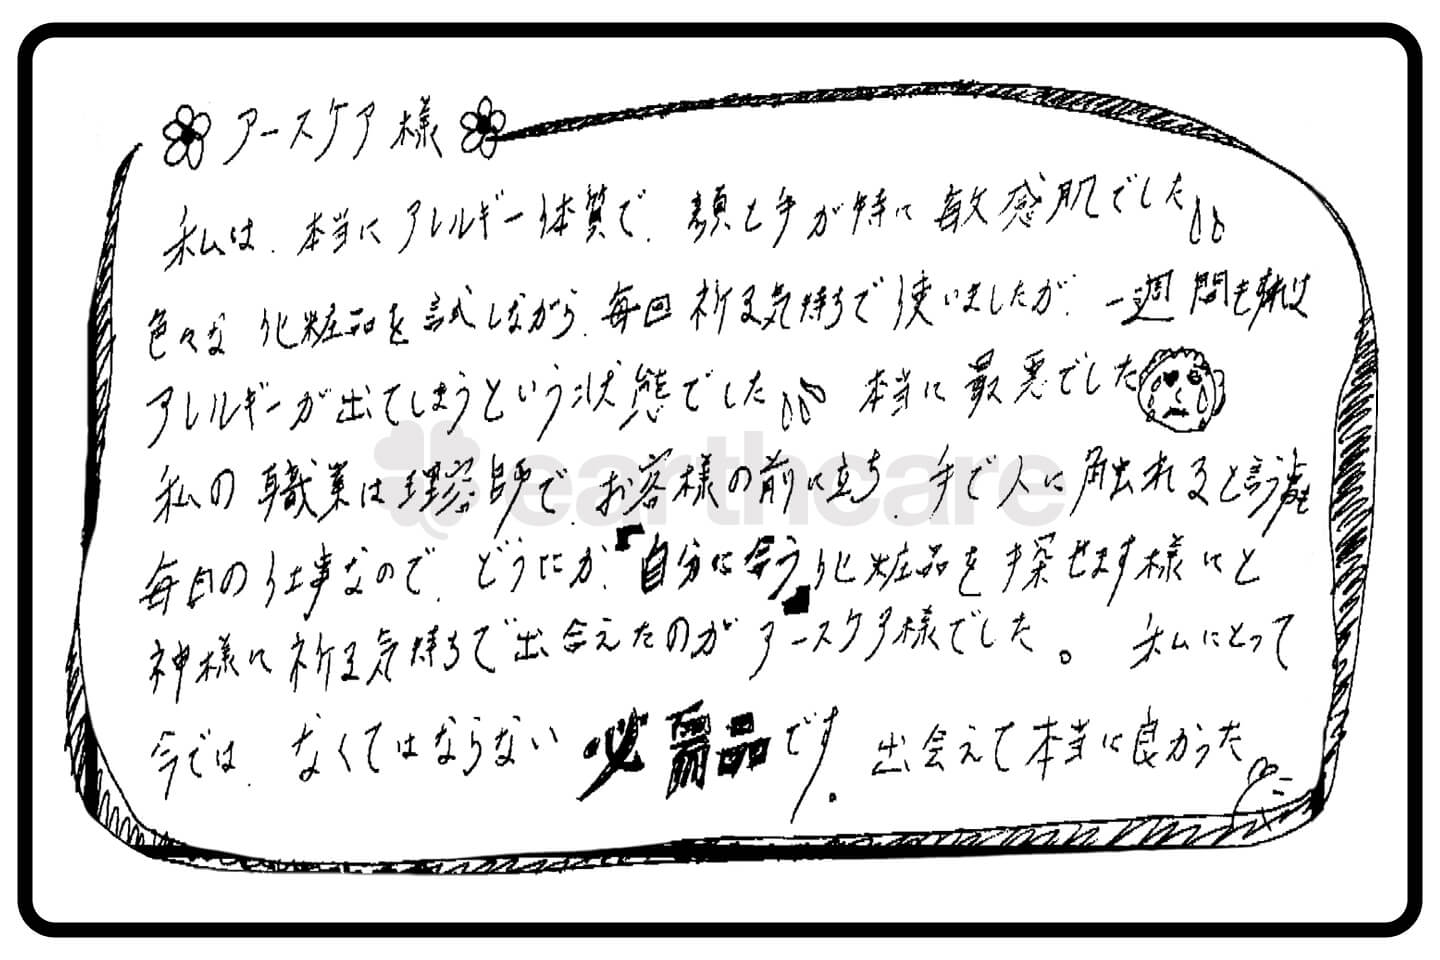 アースケア様
私は、本当にアレルギー体質で、顔と手が特に敏感肌でした
色々な化粧品を試しながら、毎回祈る気持ちで使いましたが、一週間も経てば
アレルギーが出てしまうという状態でした 本当に最悪でした
私の職業は理容師で、お客様の前に立ち、手で人に触れると言う
毎日の仕事なので、どうにか、「自分に合う」化粧品を探せます様にと
神様に祈る気持ちで出会えたのがアースケア様でした。 私にとって
今では、なくてはならない必需品です。出会えて本当に良かった
earthcare